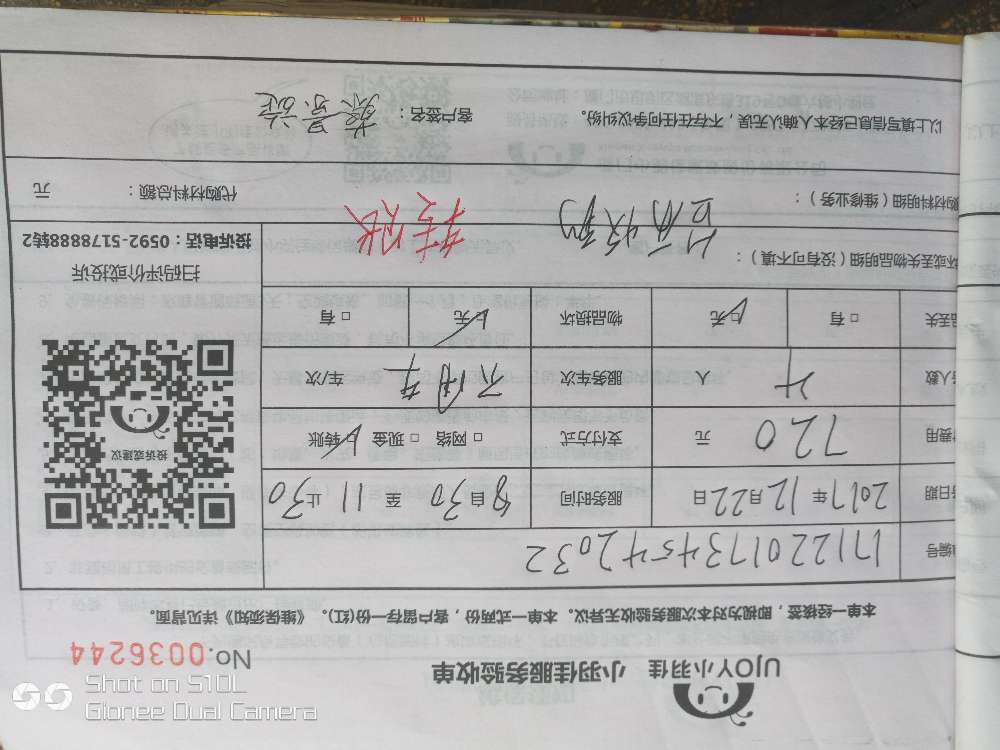 UJOY小羽佳 小羽佳服务验收单
No.0036244
本单一经签核，即视为对本次服务验收无异议。本单一式两份，客户留存一份(红)。《维保须知》详见背面。
编号 171220173454 2032
日期 2017年12月22日 服务时间 8 30 自 至 11 30 止
费用 720 元 支付方式 □ 网络 □ 现金 □ 转账
人数 人 服务车次 车/次
丢失 □ 有 □ 无 物品损坏 □ 无 □ 有
坏或丢失物品明细（没有可不填）：
购材料明细（维修业务）：
代购材料总额： 元
挂账
投诉或建议
扫码评价或投诉
投诉电话：0592-5178888转2
以上填写信息已经本人确认无误，不存在任何争议纠纷。
客户签名：
Shot on S10L
Gionee Dual Camera